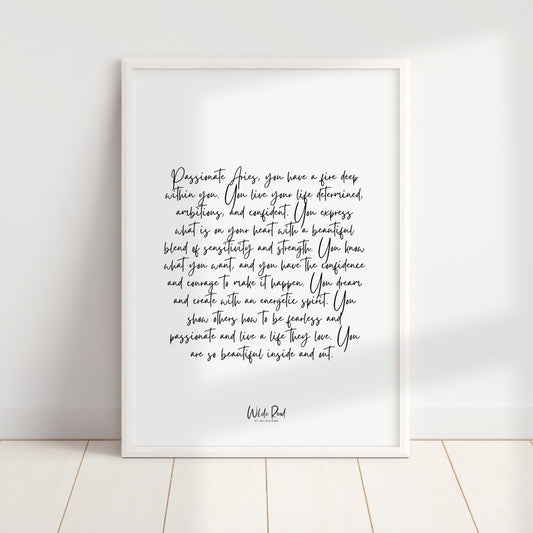 Passionate Aries, you have a fire deep
within you. You live your life determined,
ambitious, and confident. You express
what is on your heart with a beautiful
blend of sensitivity and strength. You know
what you want, and you have the confidence
and courage to make it happen. You dream
and create with an energetic spirit. You
show others how to be fearless and
passionate and live a life they love. You
are so beautiful inside and out.
Wilde Road